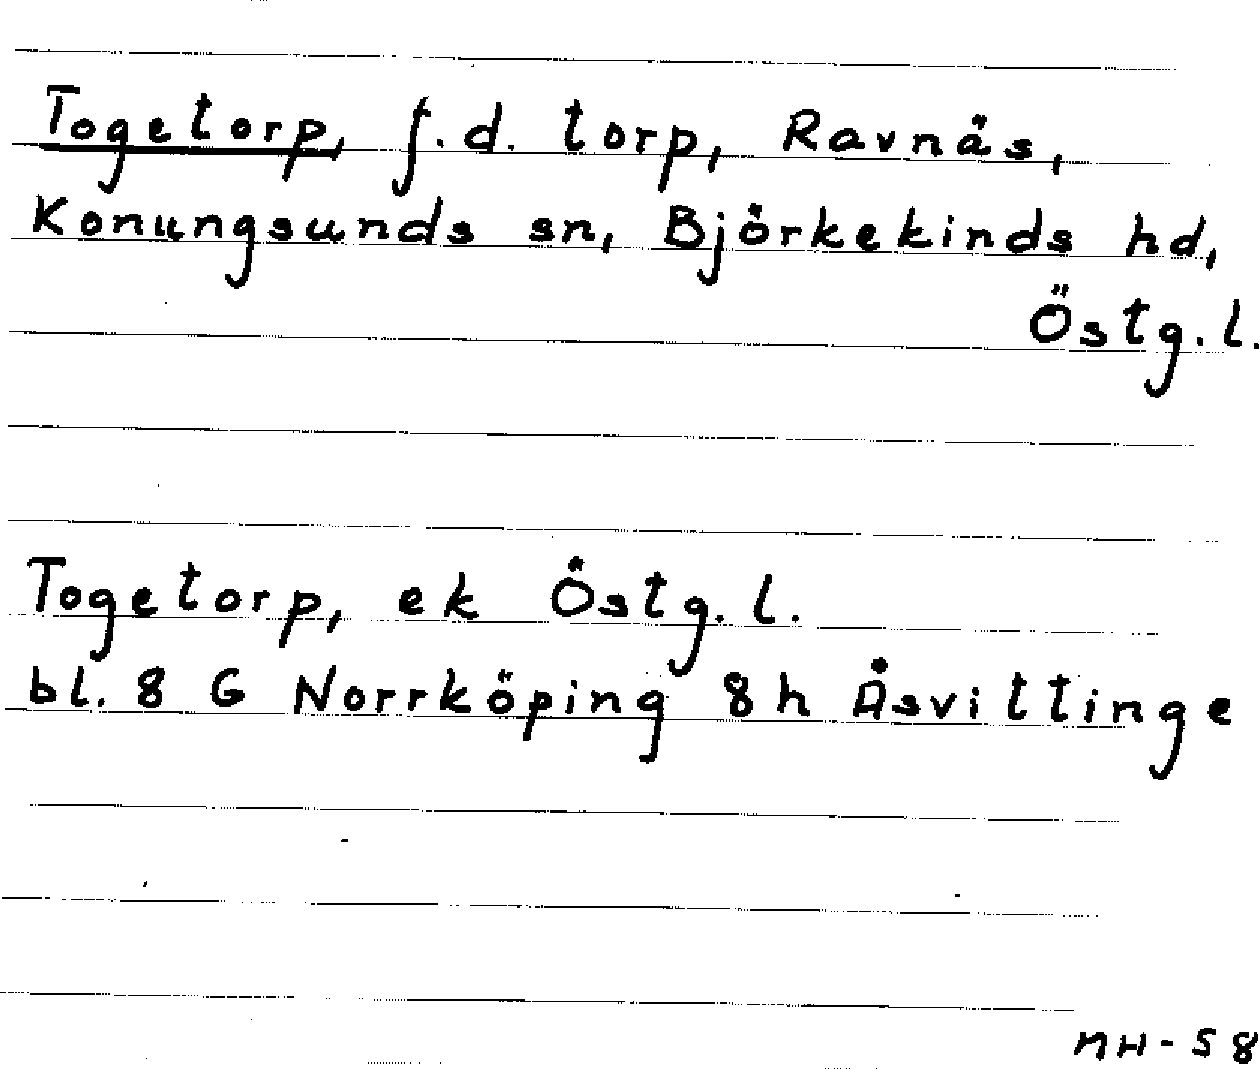 Togetorp, f.d. torp, Ravnäs,
Konungsunds sn, Björkekinds hd,
Östg.l.
Togetorp, ek Östg.l.
bl. 8 G Norrköping 8h Åsvittinge
MH-58